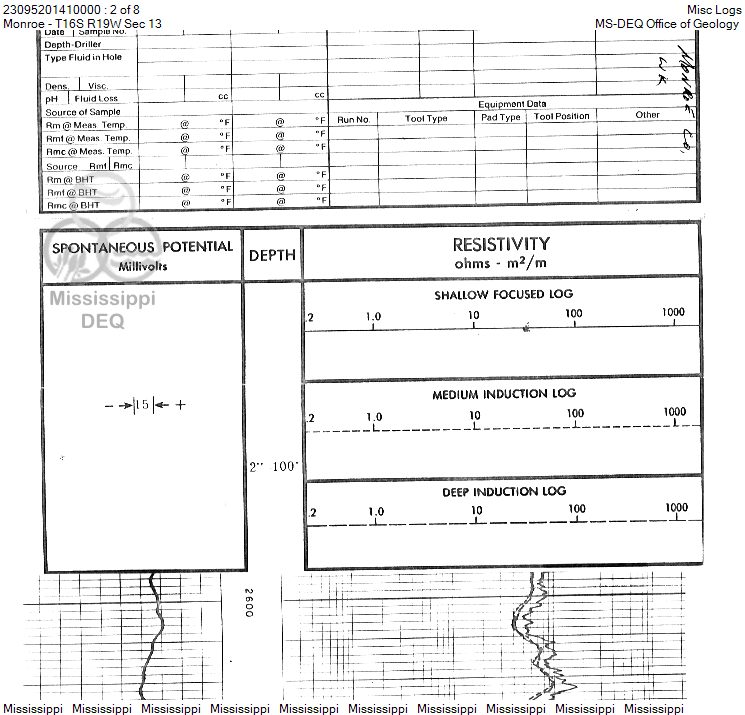 23095201410000 : 2 of 8 Misc Logs
Monroe - T16S R19W Sec 13 MS-DEQ Office of Geology
Date Sample No.
Depth-Driller
Type Fluid in Hole
MONROE CO,
Dens. Visc.
pH Fluid Loss cc cc
Equipment Data
Source of Sample
Run No. Tool Type Pad Type Tool Position Other
Rm @ Meas. Temp. @ °F @ °F
Rmf @ Meas. Temp. @ °F @ °F
Rmc @ Meas. Temp. @ °F @ °F
Source Rmf Rmc
Rm @ BHT @ °F @ °F
Rmf @ BHT @ °F @ °F
Rmc @ BHT @ °F @ °F
SPONTANEOUS POTENTIAL
Millivolts
DEPTH
RESISTIVITY
ohms - m²/m
Mississippi
DEQ
SHALLOW FOCUSED LOG
.2 1.0 10 100 1000
- 15 +
MEDIUM INDUCTION LOG
.2 1.0 10 100 1000
2" 100'
DEEP INDUCTION LOG
.2 1.0 10 100 1000
2600
Mississippi Mississippi Mississippi Mississippi Mississippi Mississippi Mississippi Mississippi Mississippi Mississippi